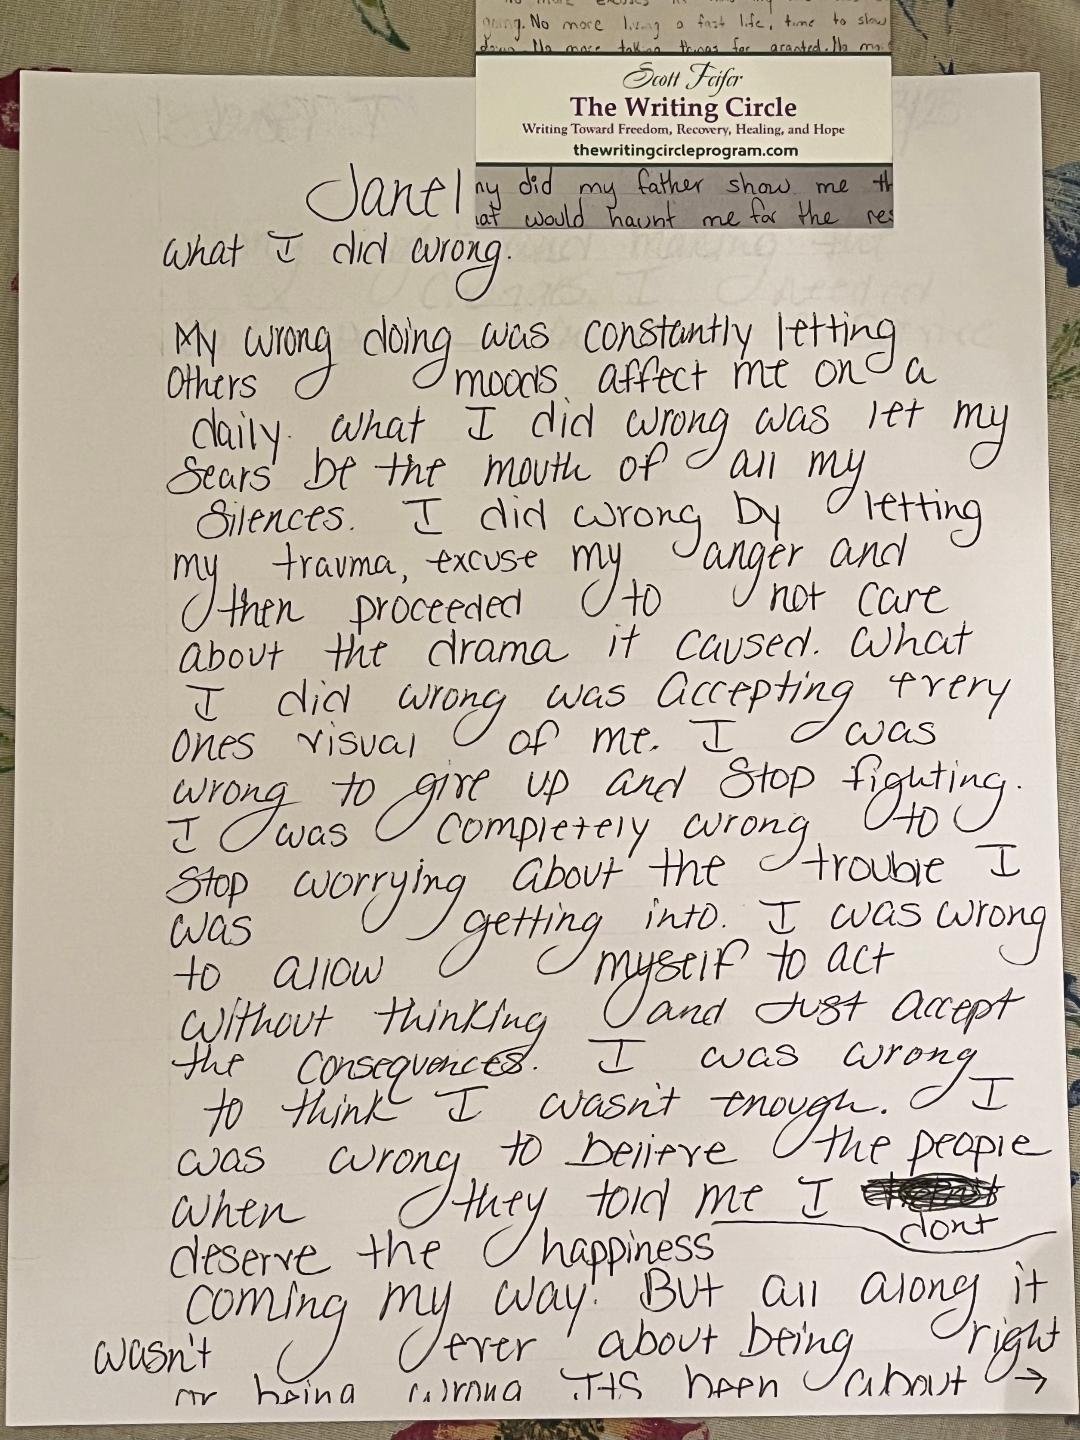 going. No more living a fast life, time to slow
down. No more taking things for granted. No mo
Scott Feifer
The Writing Circle
Writing Toward Freedom, Recovery, Healing, and Hope
thewritingcircleprogram.com
hy did my father show me th
at would haunt me for the res
Janel
what I did wrong.
My wrong doing was constantly letting
others moods affect me on a
daily. what I did wrong was let my
Scars be the mouth of all my
Silences. I did wrong by letting
my trauma, excuse my anger and
then proceeded to not care
about the drama it caused. What
I did wrong was accepting every
ones visual of me. I was
wrong to give up and Stop fighting.
I was completely wrong to
Stop worrying about the trouble I
was getting into. I was wrong
to allow myself to act
without thinking and Just accept
the consequences. I was wrong
to think I wasn't enough. I
was wrong to believe the people
when they told me I dont
deserve the happiness
coming my way. But all along it
wasn't ever about being right
or being wrong ITS been about →